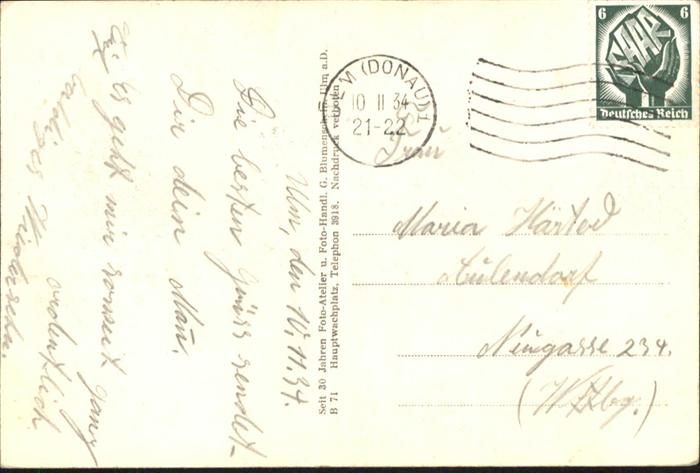 Ulm, den 10.11.34.
Die besten Grüss sendet
Dir dein Man.
Es geht mir sonset ganz
ordentlich.
Wiedersehn.
Seit 30 Jahren Foto-Atelier u. Foto-Handl. G. Blumenschein, Ulm a.D.
B 71 Hauptwachplatz, Telephon 3918. Nachdruck verboten
ULM (DONAU) 1
10 11 34
21-22
6 SAAR 6
Deutsches Reich
Frau
Maria Härtod
Aulendorf
Neugasse 234.
(Wttbg.)